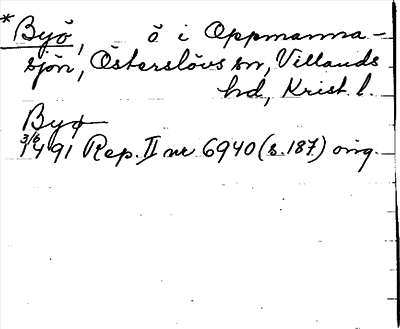 *Byö, ö i Oppmanna-
sjön, Österslövs sn, Villands
hd, Krist. l.
Byø
3/6 1491 Rep. II nr 6940 (s. 187) orig.